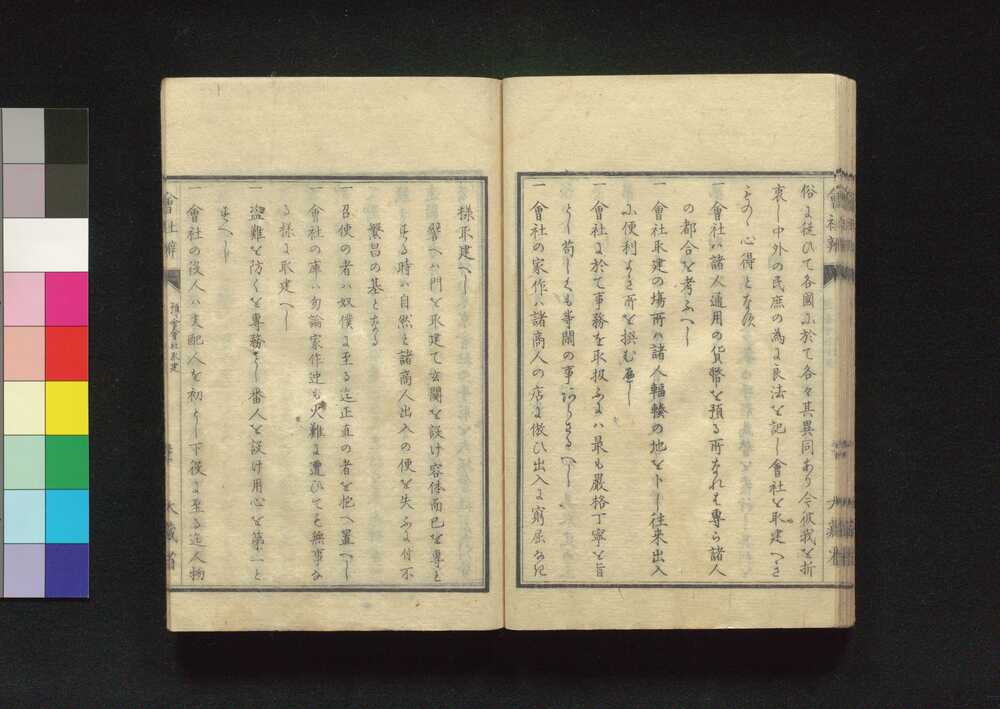 俗に從ひて各國に於て各々其異同あり今彼我を折
衷し中外の民庶の為に良法を記し會社を取建へき
ものゝ心得となす
一會社ハ諸人通用の貨幣を預る所なれは專ら諸人
の都合を考ふへし
一會社取建の塲所ハ諸人輻輳の地を卜し往来出入
に便利よき所を撰む可し
一會社に於て事務を取扱ふにハ最も嚴格丁寧を旨
とし苟しくも等閑の事あるへからす
一會社の家作ハ諸商人の店に倣ひ出入に窮屈なき
様取建へし
譬へハ門を取建て玄關を設け容体而已を專と
する時ハ自然と諸商人出入の便を失ふに付不
繁昌の基となる
一召使の者ハ奴僕に至る迄正直の者を抱へ置へし
一會社の庫ハ勿論家作迚も火難に遭ひても無事な
る様に取建へし
一盗難を防くを專務とし番人を設け用心を第一と
すへし
一會社の役人ハ支配人を初めとし下役に至る迄人物
會社辨
大藏省